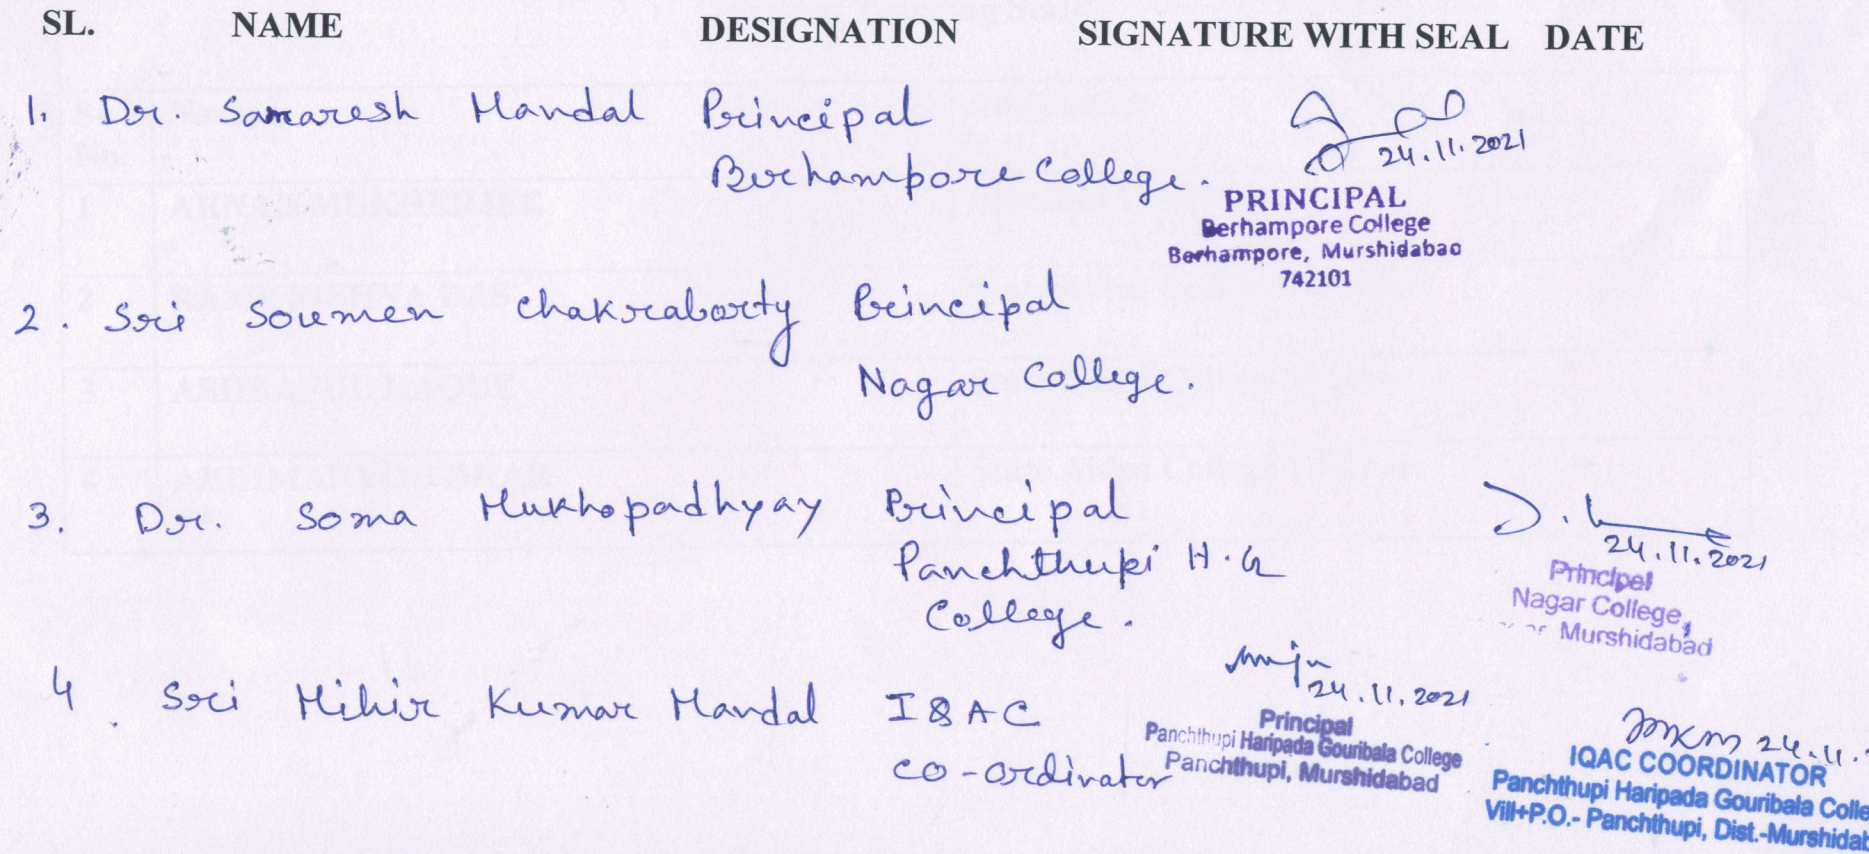 SL. NAME DESIGNATION SIGNATURE WITH SEAL DATE
1. Dr. Samaresh Mandal Principal
Berhampore College.
24.11.2021
PRINCIPAL
Berhampore College
Berhampore, Murshidabad
742101
2. Sri Soumen Chakraborty Principal
Nagar College.
3. Dr. Soma Mukhopadhyay Principal
Panchthupi H.G
College.
24.11.2021
Principal
Nagar College,
Murshidabad
4. Sri Mihir Kumar Mandal IQAC
co-ordinator
24.11.2021
Principal
Panchthupi Haripada Gouribala College
Panchthupi, Murshidabad
24.11.
IQAC COORDINATOR
Panchthupi Haripada Gouribala Colle
Vill+P.O.- Panchthupi, Dist.-Murshidab
1 ARNAB MUKHERJEE
2 RAMKRISHNA DAS
3 ASHRAFUL HAQUE
4
State Aided College Teacher